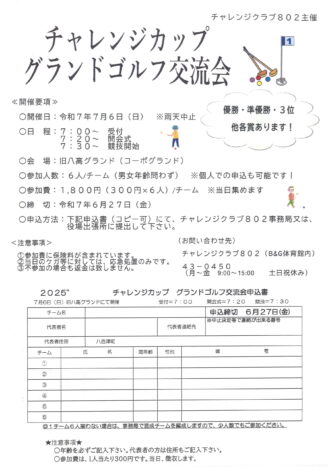 チャレンジクラブ802主催
チャレンジカップ
グランドゴルフ交流会
1
≪開催要項≫
優勝・準優勝・3位
他各賞あります!
○開催日:令和7年7月6日(日) ※雨天中止
○日 程:7:00~ 受付
7:20~ 開会式
7:30~ 競技開始
○会 場:旧八高グランド(コーポグランド)
○参加人数:6人/チーム(男女年齢問わず) ※個人での申込も可能です!
○参加費:1,800円(300円×6人)/チーム ※当日集めます
○締 切:令和7年6月27日(金)
○申込方法:下記申込書(コピー可)にて、チャレンジクラブ802事務局又は、
役場出張所に提出して下さい。
<注意事項>
①参加費に保険料が含まれています。
②当日のケガ等に対しては、応急処置のみです。
③不参加の場合も返金は致しません。
(お問い合わせ先)
チャレンジクラブ802(B&G体育館内)
43-0450
(月~金 9:00~15:00 土日祝休み)
2025" チャレンジカップ グランドゴルフ交流会申込書
7月6日(日)旧八高グランドにて開催 受付=7:00 開会式=7:20 競技=7:30
チーム名 申込締切 6月27日(金)
代表者名 代表者連絡先
代表者住所 八百津町
チーム 氏 名 満年齢 性別 備 考
①
②
③
④
⑤
⑥
◎1チーム6人揃わない場合は、事務局で混成チームを編成しますので、少人数でもご参加ください。
★注意事項★
○年齢を必ずご記入下さい。代表者の方は住所もご記入下さい。
○参加費は、1人当たり300円です。当日、徴収します。